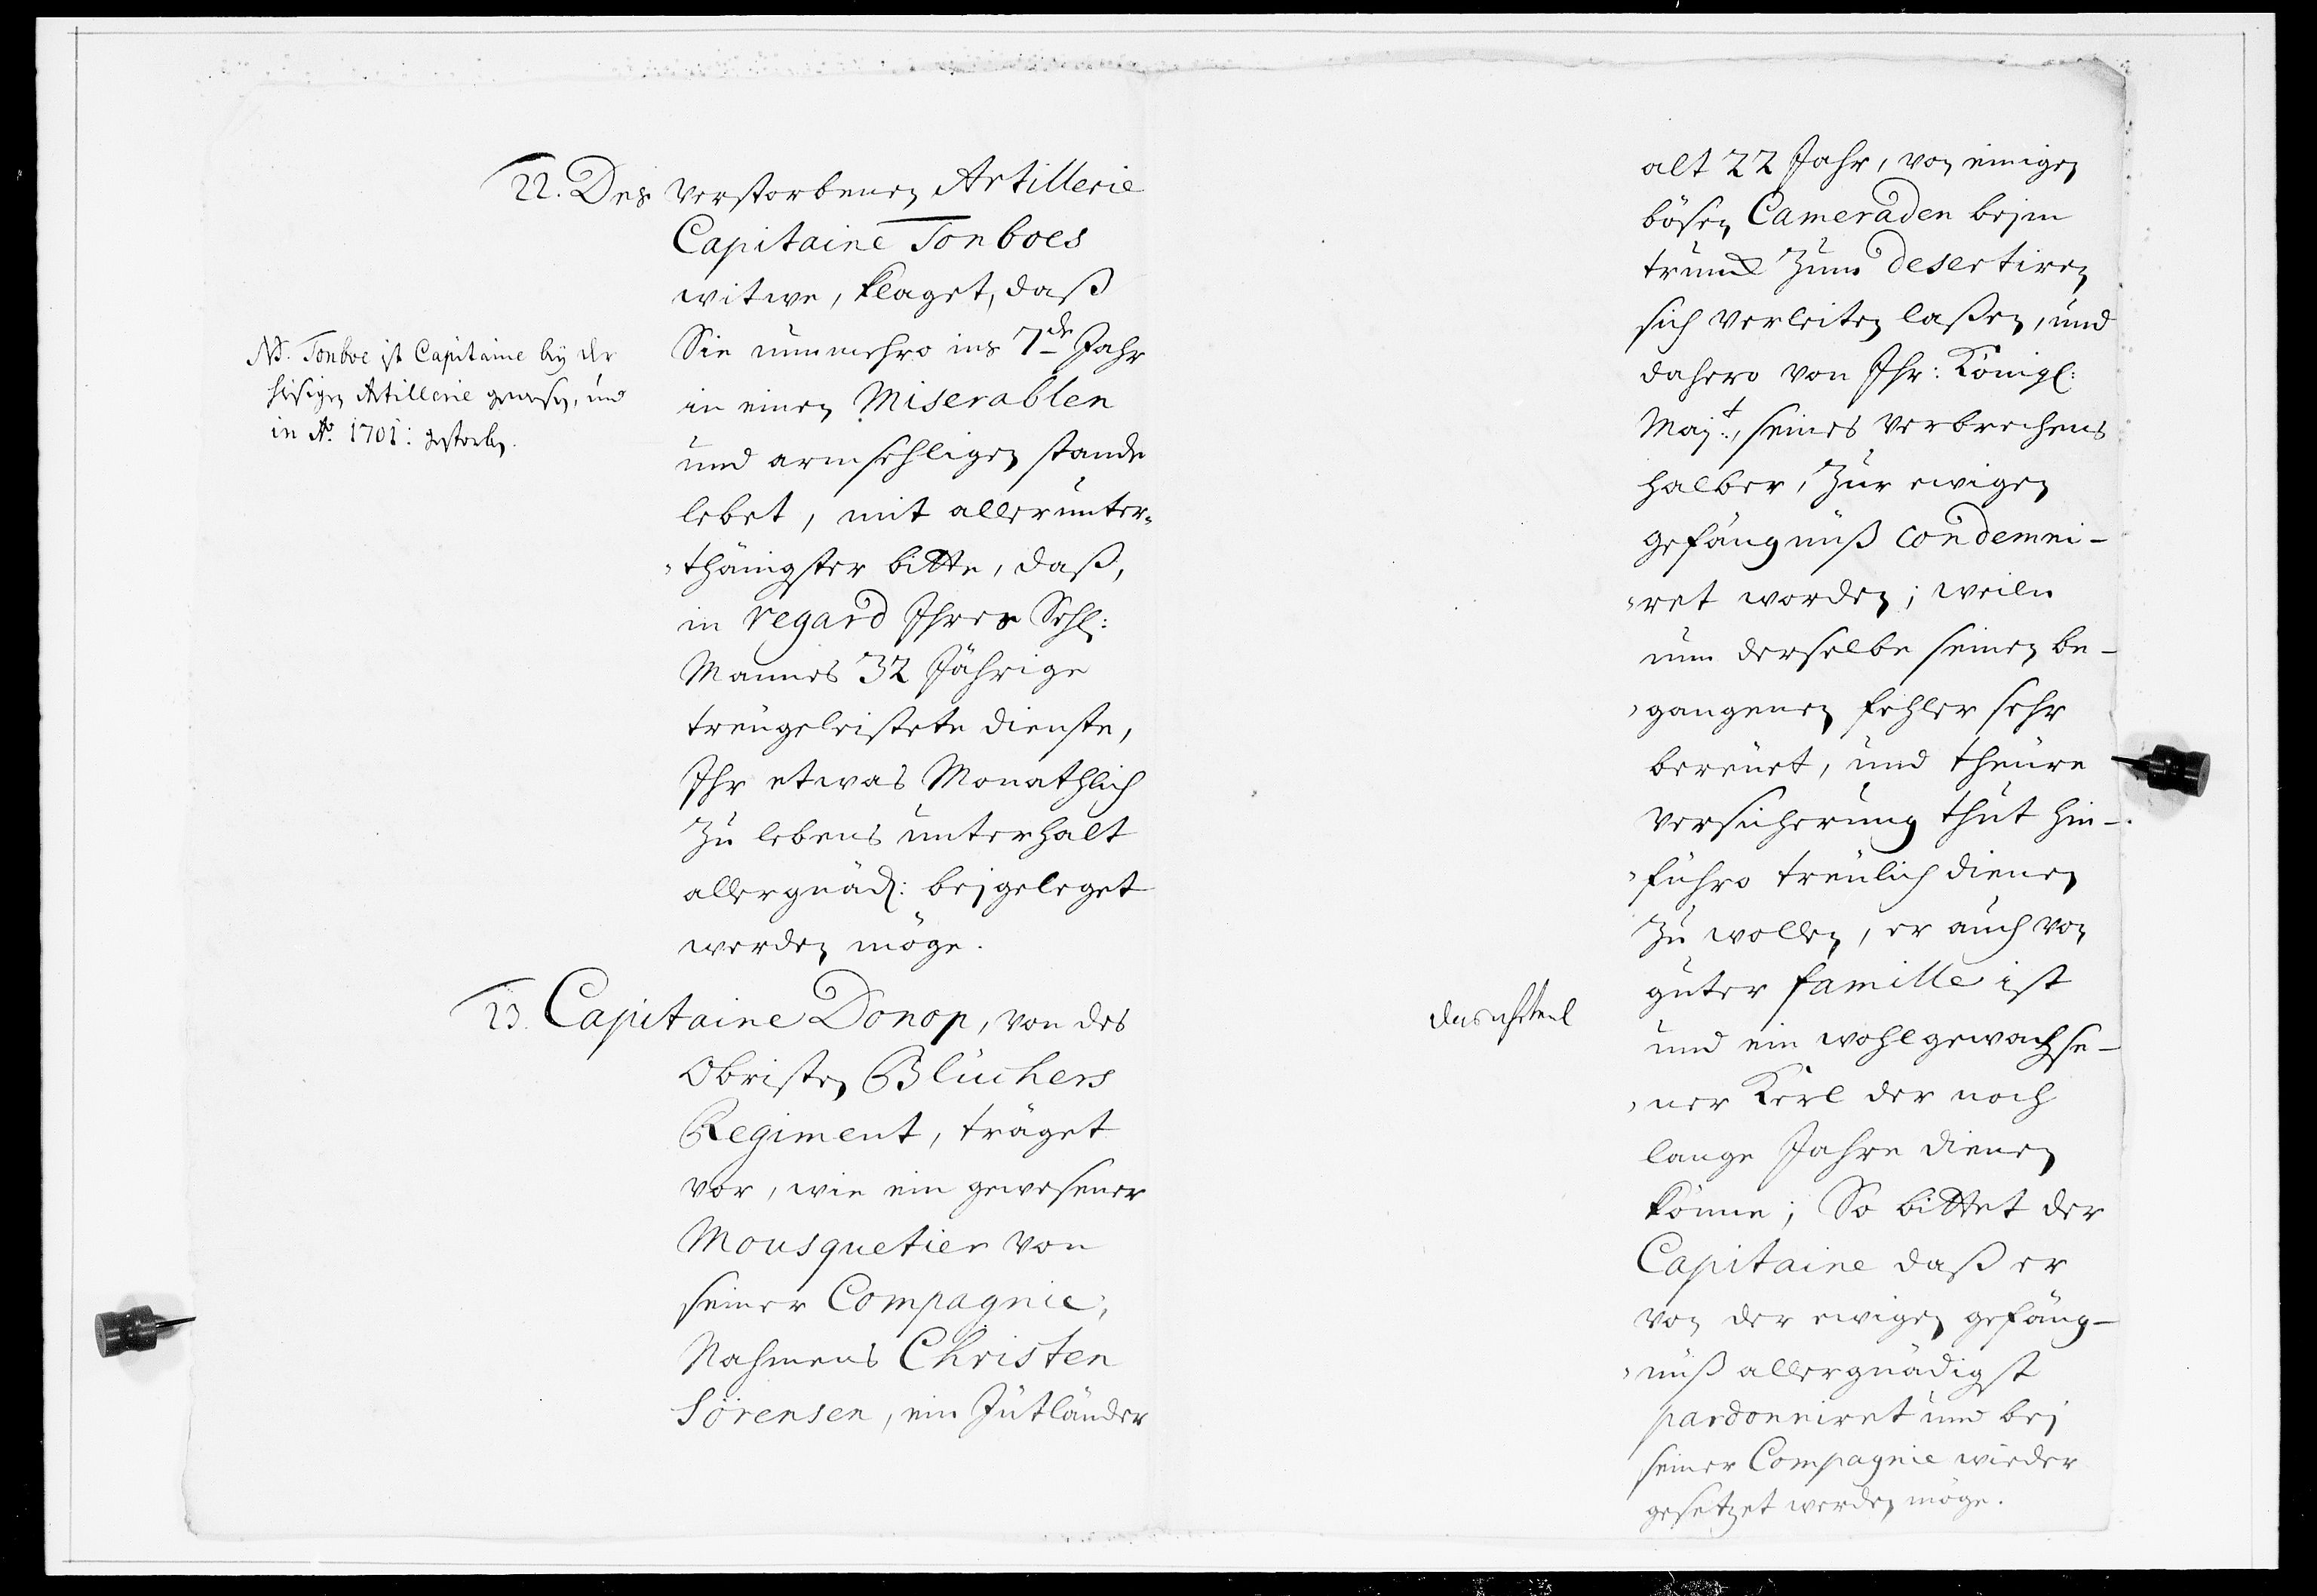 22. Des verstorbenen Artillerie
Capitaine Tonboes
witwe, klaget, daß
Sie nunmehro ins 7de Jahr
in einen Miserablen
und armsehligen stande
lebet, mit allerunter-
thänigster bitte, daß,
in regard Ihres Sehl:
Mannes 32 Jährige
treugeleistete dienste,
Ihr etwas Monathlich
zu lebens unterhalt
allergnäd: beygeleget
werden möge.
NB. Tonboe ist Capitaine bey der
hiesigen Artillerie gewesen, und
in Ao. 1701: gestorben.
23. Capitaine Donop, von des
Obristen Blüchers
Regiment, träget
vor, wie ein gewesener
Mousquetier von
seiner Compagnie,
Nahmens Christen
Sörensen, ein Jütländer
alt 22 Jahr, von einigen
bösen Cameraden beym
trunck zum desertiren
sich verleiten laßen, und
dahero von Ihr: Königl:
Mayt:, seines verbrechens
halber, zur ewigen
gefängnüß condemni-
ret worden; weiln
nun derselbe seinen be-
gangenen fehler sehr
bereuet, und theure
versicherung thut hin-
führo treulich dienen
zu wollen, er auch von
guter famille ist
und ein wohlgewachse-
ner Kerl der noch
lange Jahre dienen
könne; So bittet der
Capitaine daß er
von der ewigen gefäng-
nüß allergnädigst
pardonniret und bey
seiner Compagnie wieder
gesetzet werden möge.